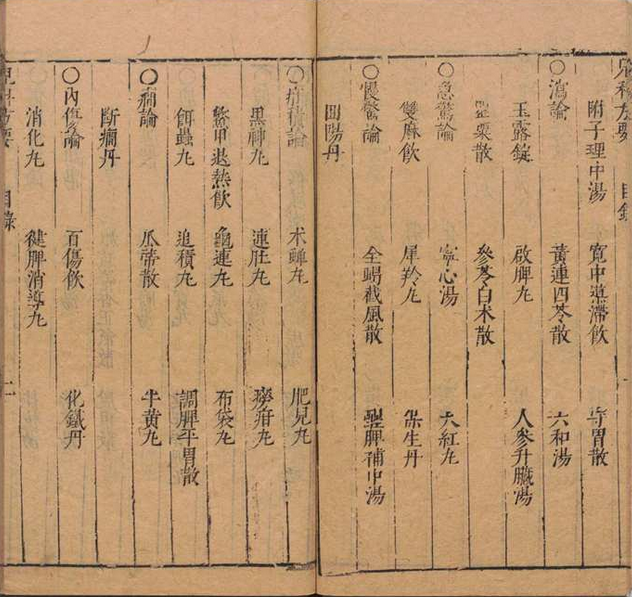 兒科方要 目錄
附子理中湯 寬中導滯飲 平胃散
○瀉論 黃連四苓散 六和湯
玉露錠 啟脾丸 人參升臟湯
罌粟散 參苓白朮散
○急驚論 寧心湯 大紅丸
雙麻飲 犀羚丸 集生丹
○慢驚論 全蝎截風散 醒脾補中湯
回陽丹
○疳積論 朮蟬丸 肥兒丸
黑神丸 連肚丸 癆疳丸
鱉甲退熱飲 龜連丸 布袋丸
餌蟲丸 追積丸 調脾平胃散
○癇論 瓜蒂散 牛黃丸
斷癇丹
○內傷論 百傷飲 化鐵丹
消化丸 健脾消導丸
兒科方要 目錄 二